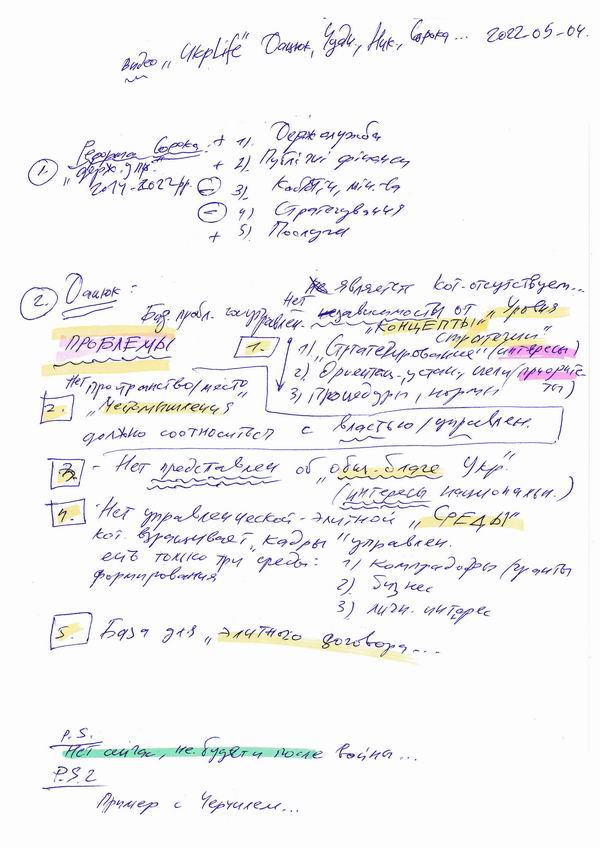 видео „UkrLife" Дацюк, Чудн, Ник, Сорока... 2022-05-04.
1. Реформа Сорока + 1) Держслужба
„держ. упр." + 2) Публічні фінанси
2014-2022гг. – 3) КабМін, мін-ва
– 4) Стратегування
+ 5) Послуги
2. Дацюк: Не является кот. отсутствует...
Баз. пробл. госуправлен. Нет независимости от „Уровня
ПРОБЛЕМЫ 1. „Концепты" стратегии"
1) „Стратегирование" (интересы)
2) Ориентац., устан., цели (приорите
ты)
3) Процедуры, нормы
Нет пространство/место
2. „Метамышления"
должно соотноситься с властью/управлен.
3. - Нет представлен об „общ. благе Укр."
(интересы национальн.)
4. - Нет управленческой-элитной „СРЕДЫ"
кот. взращивает „кадры" управлен.
есть только три среды: 1) компрадоры/гранты
формирования 2) бизнес
3) личн. интерес
5. База для „элитного договора...
P.S.
Нет сейчас, не будет и после войны...
P.S.2
Пример с Черчилем...